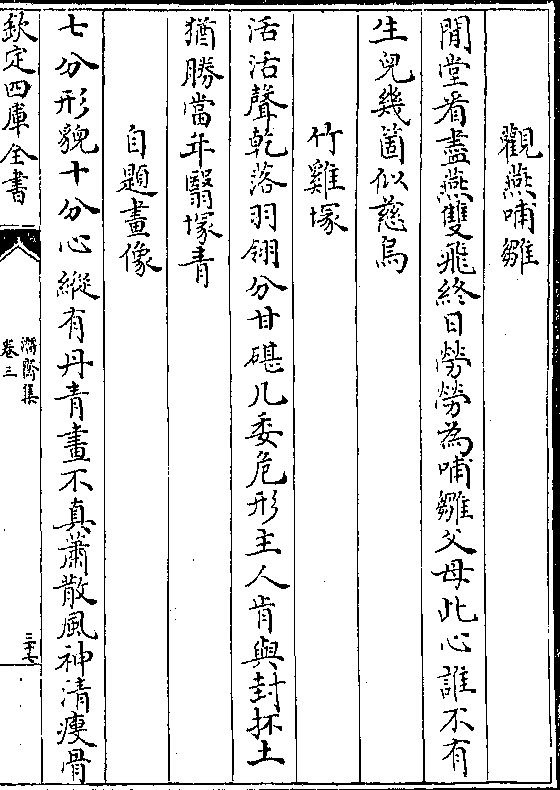 觀燕哺雛
閒堂看盡燕雙飛終日勞勞為哺雛父母此心誰不有
生兒幾箇似慈烏
竹雞塚
活活聲乾落羽翎分甘碪几委危形主人肯與封抔土
猶勝當年翳塚青
自題畫像
七分形貌十分心縱有丹青畫不真蕭散風神清瘦骨
欽定四庫全書
潛齋集
卷三
三十七